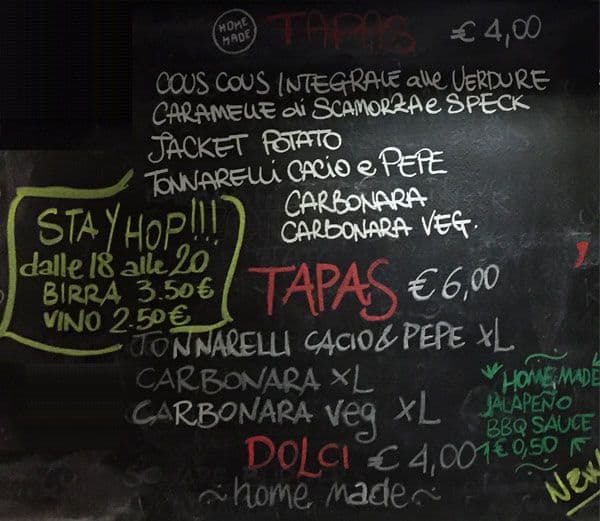 HOME MADE TAPAS € 4,00
COUS COUS INTEGRALE alle VERDURE
CARAMELLE di SCAMORZA e SPECK
JACKET POTATO
TONNARELLI CACIO e PEPE
CARBONARA
CARBONARA VEG.
STAY HOP!!!
dalle 18 alle 20
BIRRA 3.50 €
VINO 2.50 €
TAPAS € 6,00
TONNARELLI CACIO & PEPE XL
CARBONARA XL
CARBONARA veg XL
DOLCI € 4,00
~home made~
HOME MADE
JALAPEÑO
BBQ SAUCE
1 € 0,50
NEW